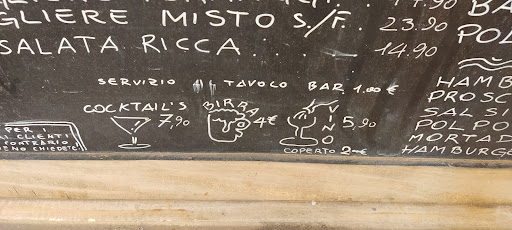 GLIERE MISTO S/F. 23.90
SALATA RICCA . . . 14.90
SERVIZIO TAVOLO BAR 1.00 €
COCKTAIL'S 7,90
BIRRA 4€
VINO 5,90
COPERTO 2€
PER
CLIENTI
CONTRARIO
CHIEDETE
BA
POL
HAMB
PROSC
SALSI
POLPO
MORTAD
HAMBURGE